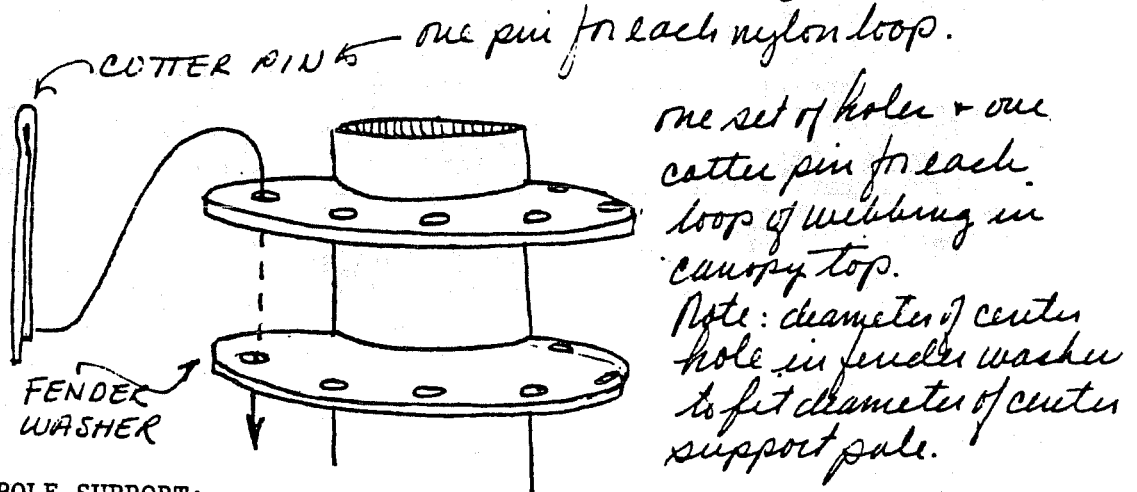 one pin for each nylon loop.
COTTER PIN
one set of holes + one
cotter pin for each
loop of webbing in
canopy top.
Note: diameter of center
hole in fender washer
to fit diameter of center
support pole.
FENDER
WASHER
POLE SUPPORT: